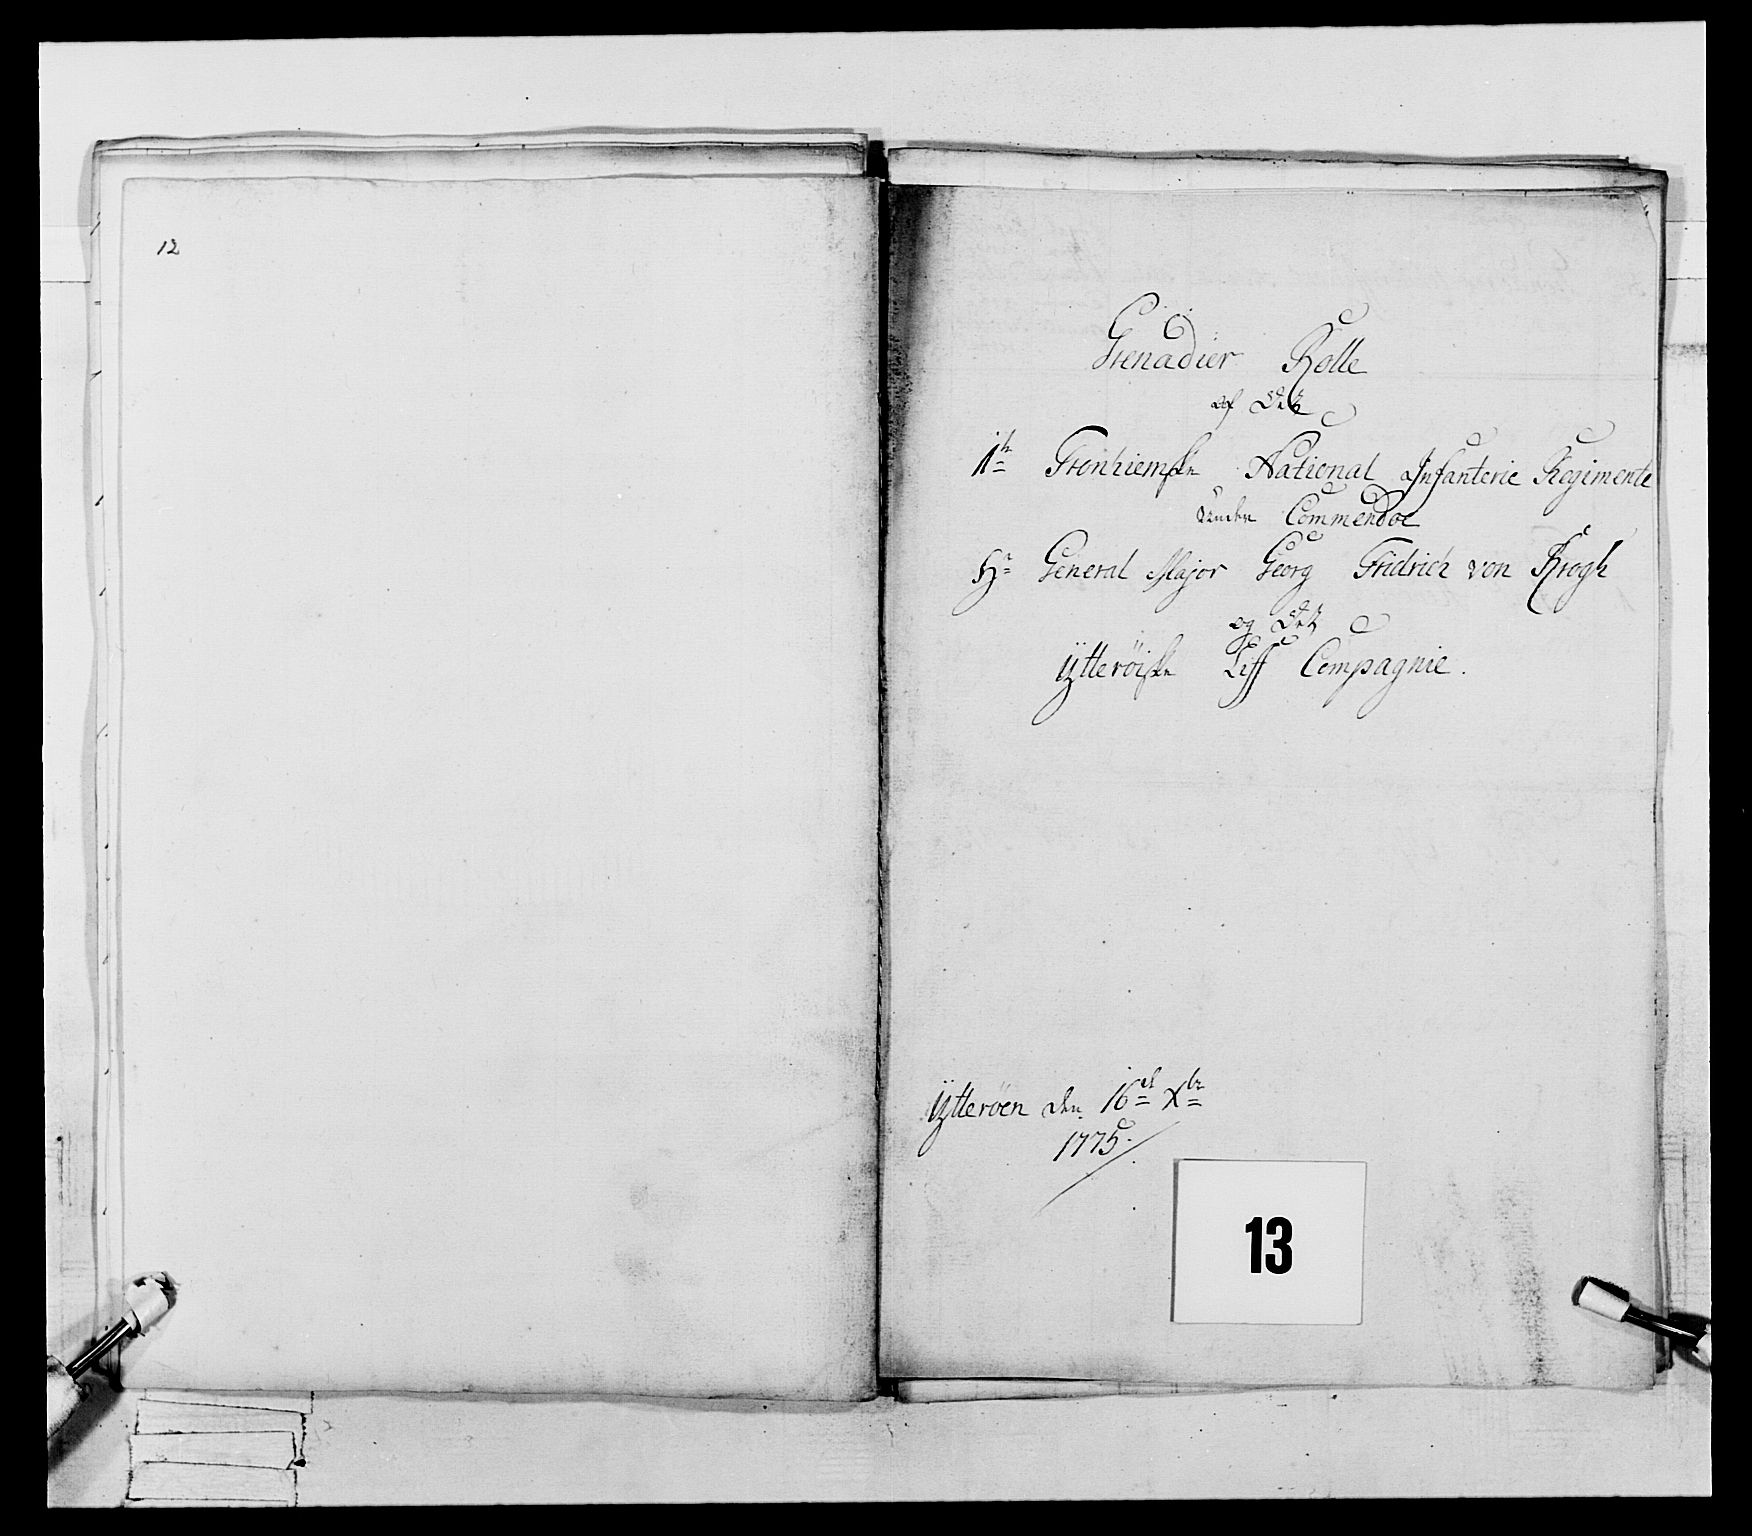 12
Grenadier Rolle
af Det
1te Tronhiemske National Infanterie Regimente
under Commendoe
Hr General Major Georg Fridrich von Krogh
og Det
Ytterøiske Liff Compagnie.
Ytterøen den 16de Xbr
1775.
13